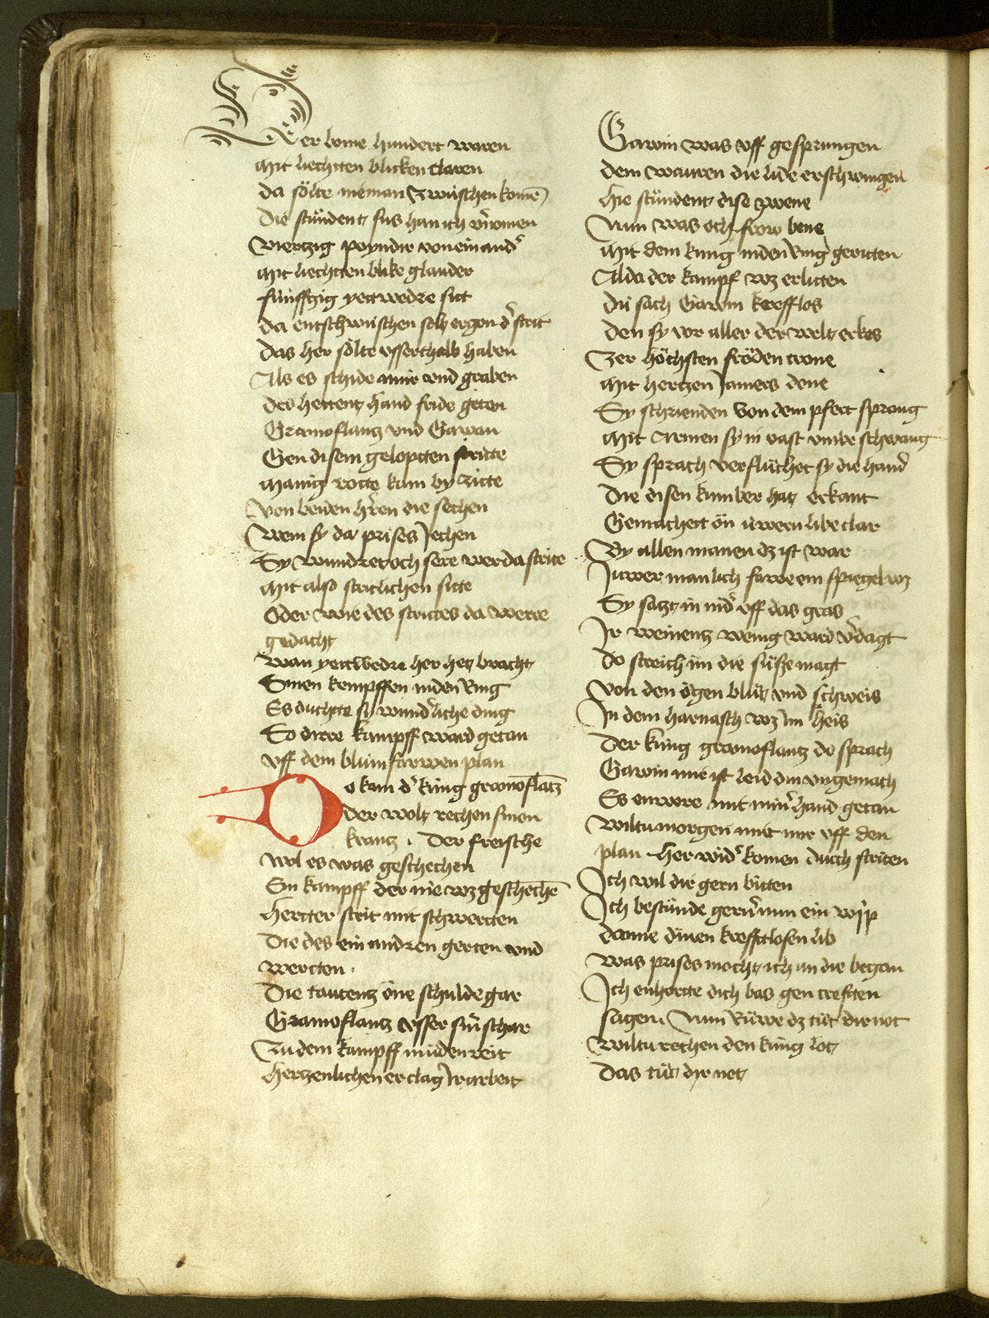 Der bome hundert waren
Mit liechtten blicken claren
da sölte nieman Zwüschen komē
Die stůndent sus han ich v̾nomen
Viertzig poynder von ein and̾
Mit liechtten blike glander
fúnfftzig yettwedre sitt
da entschwúschen solt ergon d̾ strit
Das her sölte vsserthalb haben
Als es schide mur vnd graben
Des hettent hand fride geton
Gramoflantz vnd Gawan
Gen disem gelopten stritte
Manig rotte kam by zitte
Von beiden h̾ren die sechen
Wem sy da prises Jechen
Sy wundret och sere wer da strite
Mit also stritlichen sitte
Oder wie des strittes da were
gedacht
Wan yettwedre her het bracht
Sinen kempffen inden Ring
Es duchtte sy wund̾liche ding
So dirre kampff ward getan
vff dem blůmfarwen plan
Do kam d̾ kúng gramoflātz
der wolt rechen sinen
krantz . Der freische
wol es was geschechen
Ein kampff der nie wz geschechē
Hertter strit mit schwertten
Die des ein andren gerten vnd
wertten .
Die tautentz öne schulde gar
Gramoflantz vsser sin̾ schar
Zu dem kampff múden reit
Hertzenlichen er clagt Jr arbeit
Gawin was vff gesprungen
dem waurren die lide erschwungen
Hie stůndent dise zwene
Nun was och frow bene
Mit dem kúng inden Ring geritten
Alda der kampf wz erlitten
Dú sach Gawin krefflos
Den sy vor aller der welt erkos
Zer höchsten fröden crone
Mit hertzen Jamers done
Sy schrienden von dem pfert sprang
Mit Armen sy in vast vmbe schwang
Sy sprach verflůchet sy die hand
Die disen kumber hat erkant
Gemachett ön úwern libe clar
By allen manen dz ist war
Juwer manlich farwe ein spiegel wz
Sy satzt in nid̾ vff das gras
Jr weinentz wenig ward v̾dagt
do streich im die sůsze magt
Von den ögen blůt vnd schweis
Jn dem harnasch wz im heis
Der kúng gramoflantz do sprach
Gawin mir ist leid din vngemach
Es enwere mit min̾ hand getan
wiltu morgen mit mir vff den
plan Her wid̾ komen durch striten
Jch wil dir gern bitten
Jch bestúnde gern̾ nun ein wyp
danne dinen krefftlosen lib
Was prises mocht ich an die began
Jch enhortte dich bas gen creften
sagen. Nun Rúwe dz tůt dir not
wiltu rechen den kúng lot
Das tůt dyr not